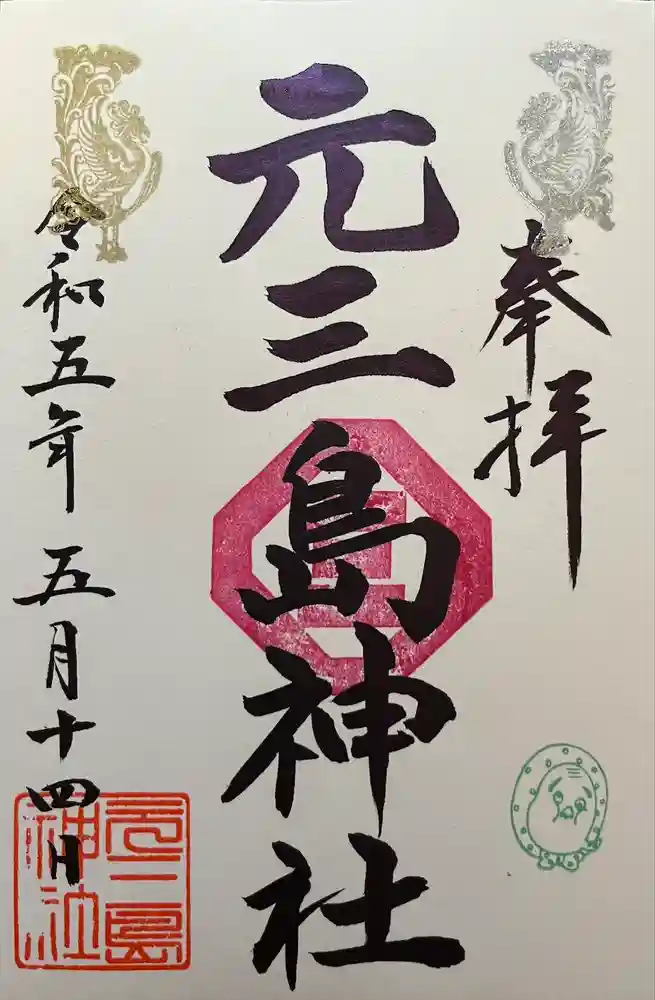 奉拝
元三島神社
令和五年五月十四日
元三島
神社